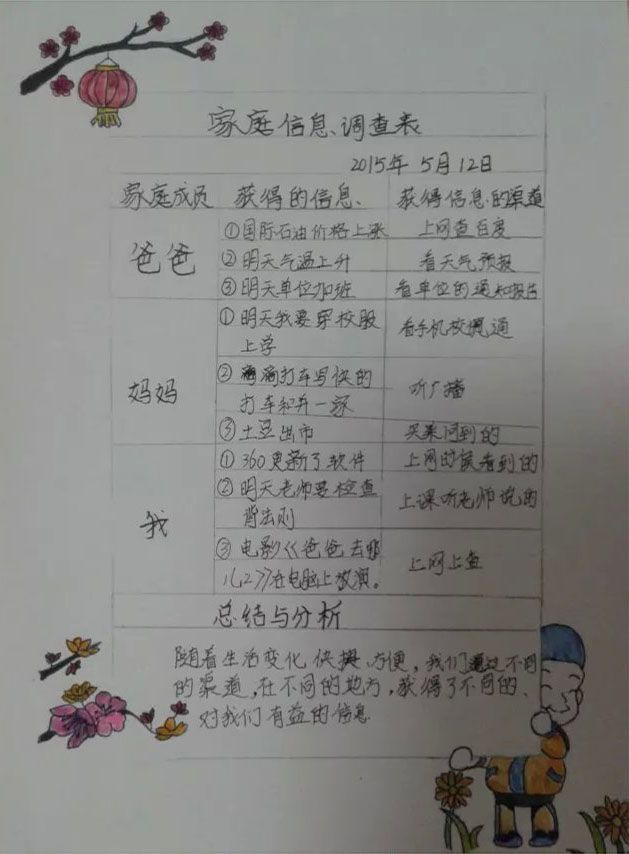 家庭信息调查表
2015年5月12日
家庭成员 获得的信息、 获得信息的渠道
①国际石油价格上涨 上网查百度
爸爸 ②明天气温上升 看天气预报
③明天单位加班 看单位的通知报告
①明天我要穿校服 看手机校 通
上学
妈妈 ② 滴打车与快的 听广播
打车和并一家
③土豆出市 买菜问到的
①360更新了软件 上网时候看到的
②明天老师要检查 上课听老师说的
我 背法则
③电影《爸爸去哪 上网上查
儿2》在电脑上放演。
总结与分析
随着生活变化快捷、方便，我们通过不同
的渠道，在不同的地方，获得了不同的、
对我们有益的信息